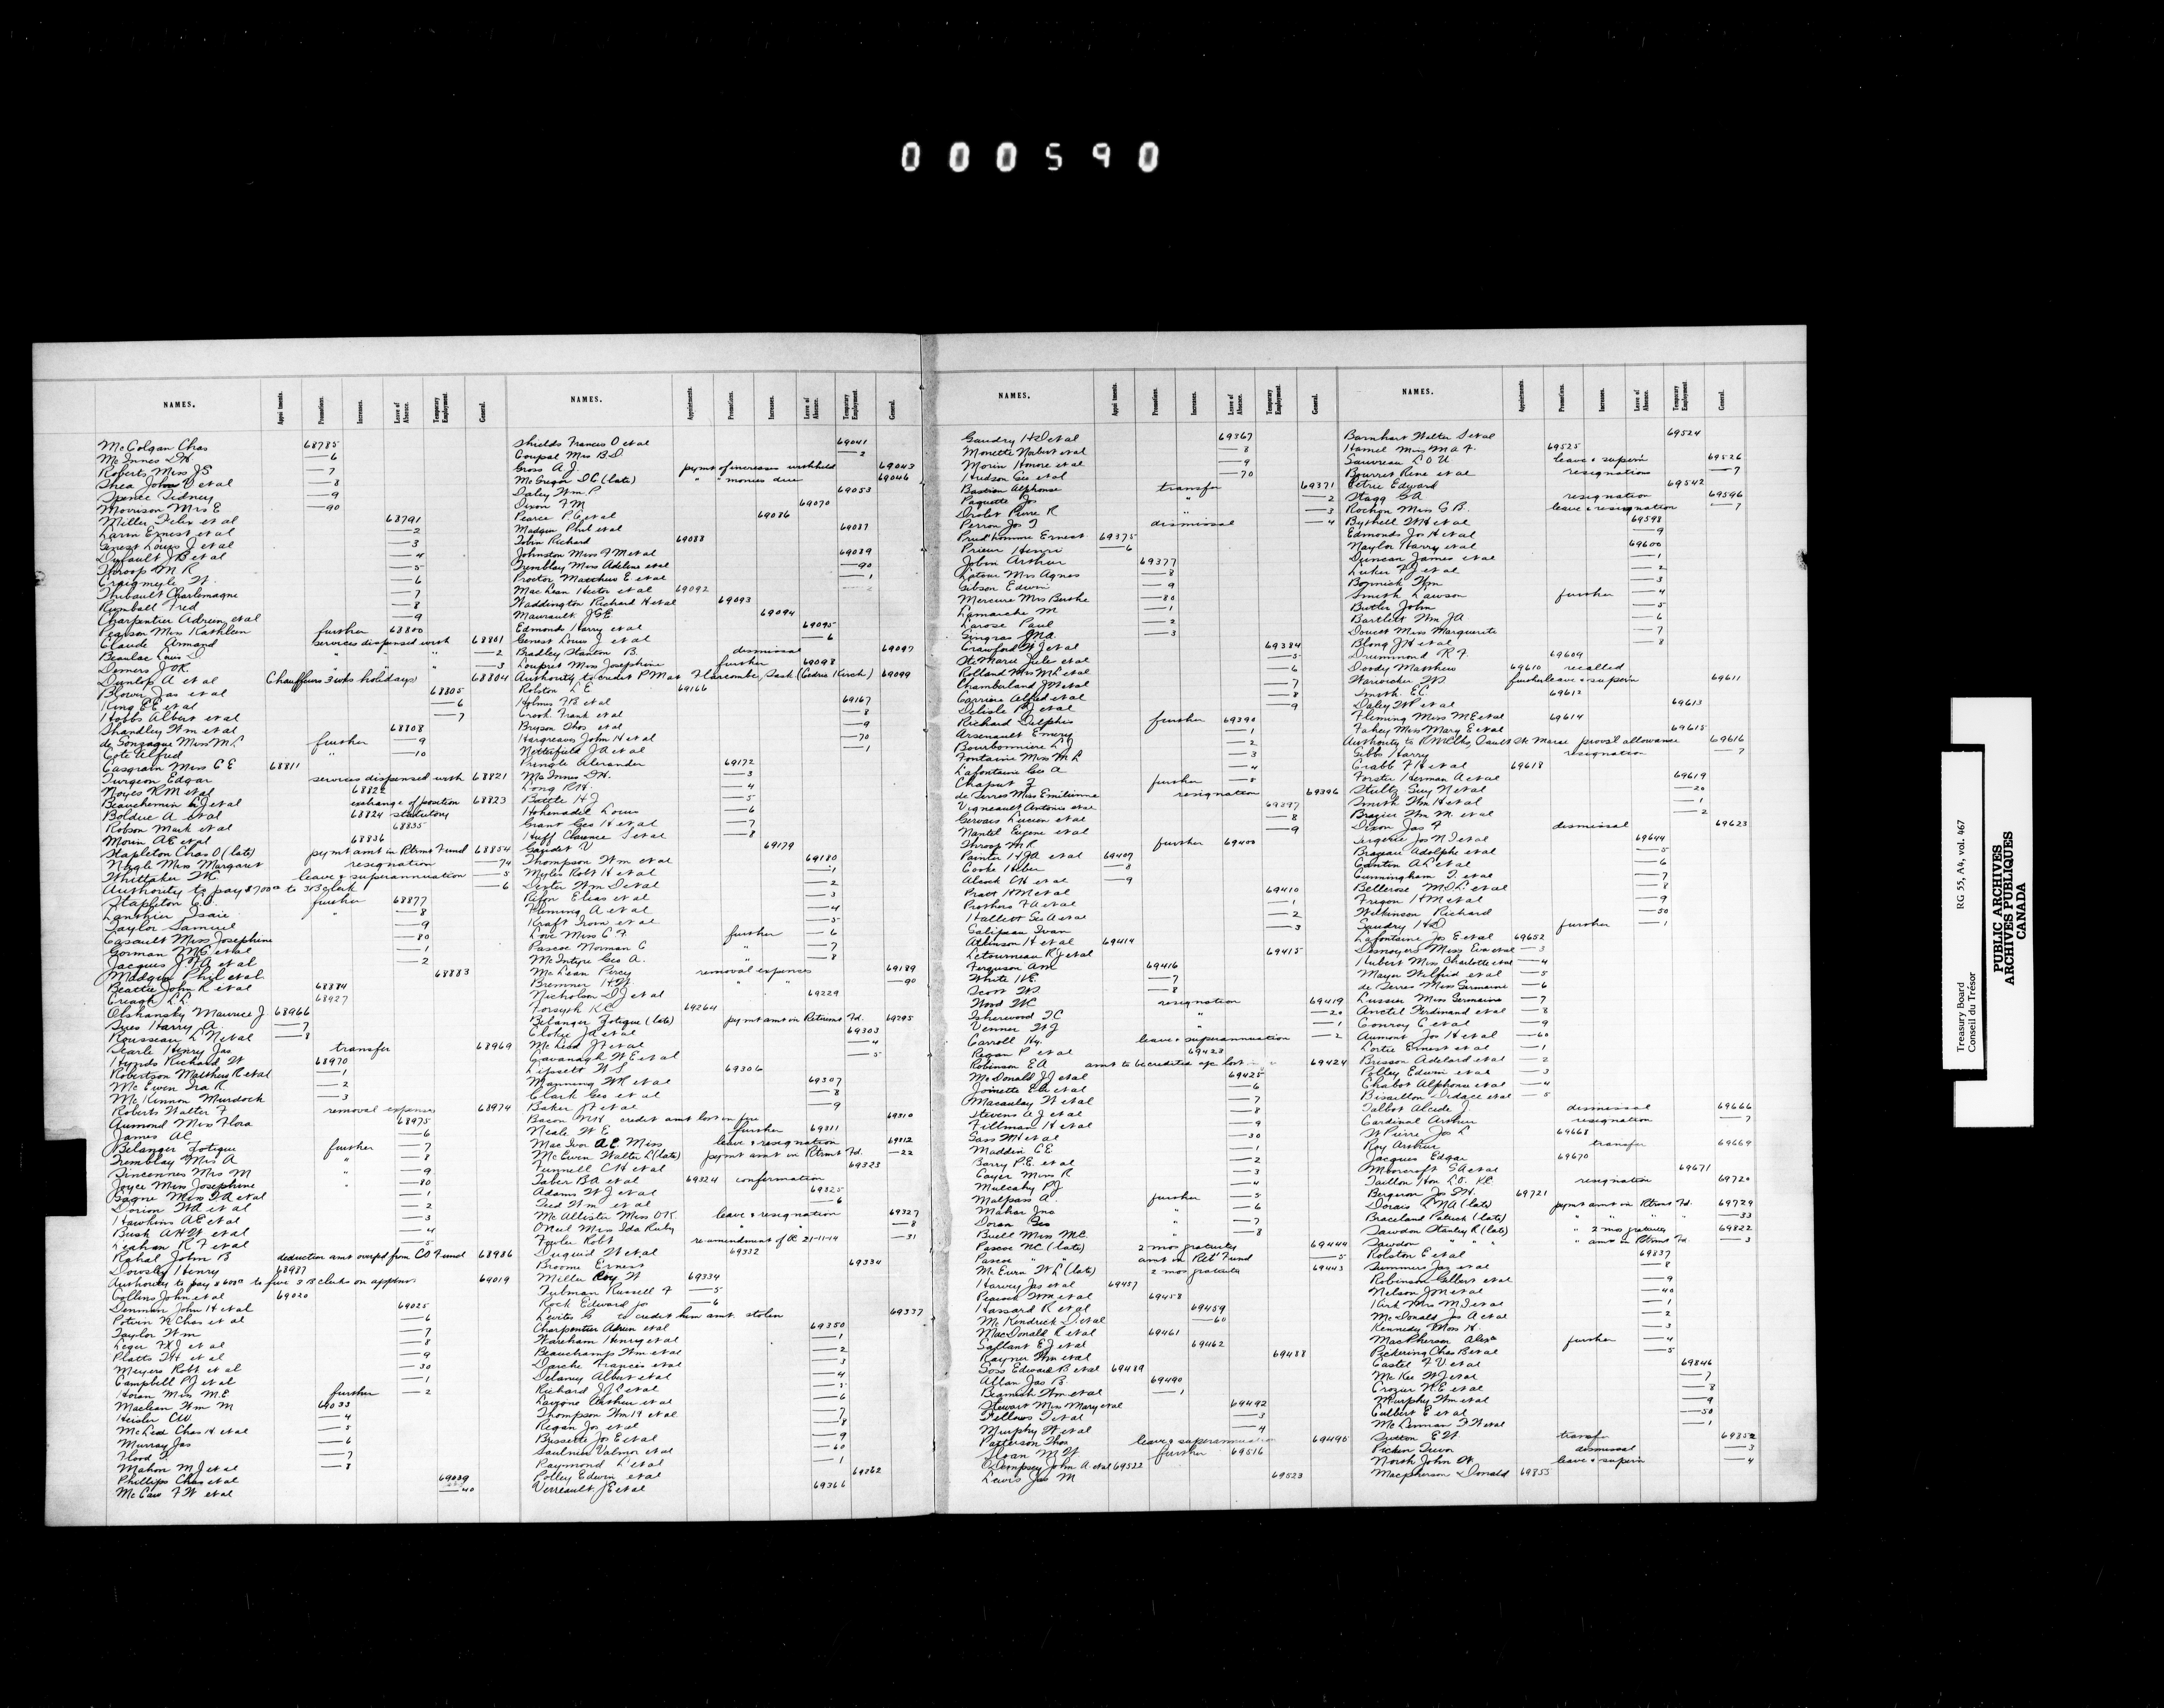 000590
NAMES. Appointments. Promotions. Increases. Leave of Absence. Temporary Employment. General.
McColgan Chas 68785
McInnes D.H. —6
Roberts Miss J S —7
Shea John V et al —8
Spence Sidney —9
Morrison Mrs E —90
Miller Felix et al 68791
Larin Ernest et al —2
Genest Louis J et al —3
Dufault J B et al —4
Throop M R —5
Craigmyle W. —6
Thibault Charlemagne —7
Rumball Fred —8
Charpentier Adrien et al —9
Pearson Miss Kathleen further 68800
Claude Armand services dispensed with 68801
Beaulac Louis D " " " —2
Demers J O R. " " " —3
Dunlop A et al Chauffeurs 3 wks holidays 68804
Blower Jas et al 68805
King E E et al —6
Hobbs Albert et al —7
Shandley Wm et al 68808
de Gonzague Miss M L further —9
Cote Alfred " —10
Casgrain Miss C E 68811
Turgeon Edgar services dispensed with 68821
Noyes R M et al 68822
Beauchemin C J et al exchange of position 68823
Bolduc A et al 68824 statutory
Robson Mark et al 68835
Morin A E et al 68836
Stapleton Chas O (late) paymt amt in Retmt Fund 68854
Nagle Miss Margaret resignation —74
Whittaker W C leave & superannuation —5
Authority to pay $700.00 to 3 B clerk —6
Stapleton C O. further 68877
Lanthier Isaie " —8
Taylor Samuel —9
Casault Miss Josephine —80
Gorman M G et al —1
Jacques J W A et al —2
Madgin Phil et al 68883
Beattie John R et al 68884
Creagh L L. 68927
Olshansky Maurice J. 68966
Ives Harry A. —7
Rousseau L N et al —8
Searle Henry Jas transfer 68969
Hynds Richard W 68970
Robertson Matthew R et al —1
McEwen Ira R —2
McKinnon Murdock —3
Roberts Walter F removal expenses 68974
Aumond Miss Flora 68975
James A C —6
Belanger Zotique further —7
Tremblay Mrs A " —8
Vincennes Mrs M " —9
Joyce Miss Josephine " —80
Gagne Miss I A et al —1
Dorion W A et al —2
Hawkins A E et al —3
Bush A H W et al —4
Leahan R F et al —5
Rahal John B deduction amt overpd from C O Fund 68986
Dowsley Henry 68987
Authority to pay $600.00 to five 3 B clerks on apptmt 69019
Collins John et al 69020
Denman John H et al 69025
Potvin N Chas et al —6
Taylor Wm —7
Leger F X J et al —8
Platts T H et al —9
Meyers Robt et al —30
Campbell P J et al —1
Horan Miss M.E further —2
Maclean Wm M 69033
Heisler C W. —4
McLeod Chas H et al —5
Murray Jas —6
Flood T. —7
Mahon M J et al —8
Phillips Chas et al 69039
McCaw F W et al —40
NAMES. Appointments. Promotions. Increases. Leave of Absence. Temporary Employment. General.
Shields Francis O et al 69041
Coupal Mrs B D. —2
Gross A J. paymt of increases withheld 69043
McGregor D C (late) " " monies due 69046
Daley Wm. P 69053
Dixon F M 69070
Pearce P. C et al 69086
Madgin Phil et al 69087
Tobin Richard 69088
Johnston Miss F M et al 69089
Tremblay Miss Adeline et al —90
Proctor Matthew E. et al —1
MacLean Hector et al 69092
Waddington Richard H et al 69093
Mairault J G E 69094
Edmonds Harry et al 69095
Genest Louis J et al —6
Bradley Stanton B. dismissal 69097
Loupret Miss Josephine further 69098
Authority to credit P M at Harcombe, Sask (Cedric Kirch) 69099
Rolston L E 69166
Holmes F B et al 69167
Crook Frank et al —8
Bryson Thos et al —9
Hargreaves John H et al —70
Netterfield J A et al —1
Pringle Alexander 69172
McInnes D H. —3
Long R H. —4
Beattie H J —5
Hohenadel Louis —6
Grant Geo H et al —7
Huff Clarence S et al —8
Gaudet V 69179
Thompson Wm et al 69180
Myles Robt H et al —1
Dexter Wm D et al —2
Rifon Elias et al —3
Fleming A et al —4
Kraft Irvin et al —5
Love Miss C F. further —6
Pascoe Norman C " —7
McIntyre Geo A. " —8
McLean Percy removal expenses 69189
Bremner H W. " " —90
Nicholson D J et al 69229
Forsyth K C 69264
Belanger Zotique (late) paymt amt in Retmt Fd. 69295
Clokie J A et al 69303
McLeod J F et al —4
Cavanagh W E et al —5
Lipsett W S 69306
Manning W R et al 69307
Clark Geo et al —8
Baker J V et al —9
Bacon N H credit amt lost in fire 69310
Neale W E further 69311
MacIvor A.C. Miss leave & resignation 69312
McEwen Walter L (late) paymt amt in Retmt Fd. —22
Funnell C H et al 69323
Taber B A et al 69324 confirmation
Adams W J et al 69325
Fred Wm et al —6
McAllister Miss O K. leave & resignation 69327
O'Neil Miss Ida Ruby " " —8
Fowler Robt re amendment of OC 21-11-14 —31
Duquid W et al 69332
Broome Ernest 69334
Miller Roy W 69334
Tubman Russell F —5
Rock Edward Jo —6
Levites G to credit him amt. stolen 69337
Charpentier Adrien et al 69350
Wareham Henry et al —1
Beauchamp Wm et al —2
Darche Francis et al —3
Delaney Albert et al —4
Richard J L et al —5
Lavigne Arthur et al —6
Thompson Wm H et al —7
Regan Jos et al —8
Brissette Jos E et al —9
Saulnier Valmor et al —60
Raymond L et al —1
Polley Edwin et al 69362
Verreault J E et al 69366
NAMES. Appointments. Promotions. Increases. Leave of Absence. Temporary Employment. General.
Gaudry H D et al 69367
Monette Nabert et al —8
Morin Honore et al —9
Hudson Geo et al —70
Bastien Alphonse transfer 69371
Paquette Jos " —2
Drolet Pierre R " —3
Perron Jos T dismissal —4
Prud'homme Ernest 69375
Prieur Henri —6
Jobin Arthur 69377
Latour Mrs Agnes —8
Gibson Edwin —9
Mercure Mrs Berthe —80
Lamarche M —1
Larose Paul —2
Gingras J N A —3
Crawford W J et al 69384
Ste Marie Jules et al —5
Rolland Miss M L et al —6
Chamberland J O et al —7
Carriere Alfred et al —8
Delisle P J et al —9
Richard Delphis further 69390
Arsenault Emery —1
Bourbonniere L J —2
Fontaine Miss M L —3
Lafontaine Geo A —4
Chaput Z further —5
de Serres Miss Emilienne resignation 69396
Vigneault Antonio et al 69397
Gervais Lucien et al —8
Nantel Eugene et al —9
Throop M R further 69400
Painter H J A et al 69407
Cooke Heber —8
Alcock C H et al —9
Pratt H M et al 69410
Prothers F A et al —1
Hallett Geo A et al —2
Galipeau Ivan —3
Atkinson H et al 69414
Letourneau R J et al 69415
Ferguson A M 69416
White H E. —7
Scott W. —8
Wood W C resignation 69419
Isherwood T C " —20
Venner W J " —1
Carroll Hy. leave & superannuation —2
Regan P et al 69423
Robinson E A amt to be credited a/c lost 69424
McDonald J J et al 69425
Joinette E A et al —6
Macaulay W et al —7
Stevens A J et al —8
Fillman H et al —9
Sass M H et al —30
Maddin C E —1
Barry P. E. et al —2
Cayer Miss R —3
Mulcahy P J —4
Malpass A. further —5
Mahar Jno " —6
Doran Geo " —7
Buell Miss M C " —8
Pascoe N C (late) 2 mos gratuity 69444
Pascoe " " amt in Ret Fund —5
McEwen W L (late) 2 mos gratuity 69443
Harvey Jas et al 69457
Peacock W M et al 69458
Hassard R et al 69459
McKendrick D. et al —60
MacDonald R et al 69461
Saftant E J et al 69462
Rayner Wm et al 69488
Goss Edward B et al 69489
Allan Jas B. 69490
Beamish Wm et al —1
Stewart Miss Mary et al 69492
Fellows T et al —3
Murphy W et al —4
Patterson Thos leave & superannuation 69495
Sloan M W further 69516
O'Dempsey John A et al 69522
Lewis Jas M 69523
NAMES. Appointments. Promotions. Increases. Leave of Absence. Temporary Employment. General.
Barnhart Walter S et al 69524
Hamel Miss M A F. 69525
Gauvreau L O U. leave & supern 69526
Bourret Rene et al resignation —7
Petrie Edward 69542
Stagg G A resignation 69596
Rochon Miss G B. leave & resignation —7
Bythell W H et al 69598
Edmonds Jos H et al —9
Naylor Harry et al 69600
Duncan James et al —1
Luker F J et al —2
Bonnick Wm —3
Smith Lawson further —4
Butler John —5
Bartlett Wm J A —6
Doucet Miss Marguerite —7
Blong J H et al —8
Drummond R F. 69609
Doody Matthew 69610 recalled
Warwicker W. further leave & supern 69611
Smith. E C. 69612
Daley W P et al 69613
Fleming Miss M E et al 69614
Fahey Miss Mary E et al 69615
Authority to R M Clks, Sault Ste Marie provs'l allowance 69616
Gibbs Harry resignation —7
Crabb F H et al 69618
Forster Herman A et al 69619
Stultz Guy N et al —20
Smith Wm H et al —1
Brazier Wm M. et al —2
Dixon Jas F dismissal 69623
Turgeon Jos N J et al 69644
Brazeau Adolphe et al —5
Cantin A L et al —6
Cunningham T. et al —7
Bellerose M D L et al —8
Frigon H M et al —9
Wilkinson Richard —50
Gaudry H D further —1
Lafontaine Jos E et al 69652
Desnoyers Miss Eva et al —3
Hubert Miss Charlotte et al —4
Mayer Wilfrid et al —5
de Serres Miss Germaine —6
Lussier Miss Germaine —7
Anctil Ferdinand et al —8
Conroy C et al —9
Aumont Jos H et al —60
Lortie Ernest et al —1
Brisson Adelard et al —2
Polley Edwin et al —3
Chabot Alphonse et al —4
Bisaillon Didace et al —5
Talbot Alcide J dismissal 69666
Cardinal Arthur resignation —7
St Pierre Jos L 69668
Roy Arthur transfer 69669
Jacques Edgar 69670
Moorcroft G A et al 69671
Taillon Hon L O. K C. resignation 69720
Bergeron Jos S H. 69721
Dorais L N A (late) paymt amt in Retmt Fd. 69729
Braceland Patrick (late) " " " " —33
Sawdon Stanley R (late) " 2 mos gratuity 69822
Sawdon " " " " amt in Retmt Fd. —3
Rolston E et al 69837
Summers Jas et al —8
Robinson Gilbert et al —9
Nelson J M et al —40
Kirk Mrs M J et al —1
McDonald Jos A et al —2
Kennedy Miss H. —3
MacPherson Alexr further —4
Pickering Chas B et al —5
Castel F V et al 69846
McKee W J et al —7
Crozier N E et al —8
Murphy Wm et al —9
Culbert E et al —50
McLennan F W et al —1
Sutton E W. transfer 69852
Picken Trevor dismissal —3
North John W. leave & supern —4
Macpherson L Donald 69855
Treasury Board RG 55, A4, vol. 467
Conseil du Trésor
PUBLIC ARCHIVES
ARCHIVES PUBLIQUES
CANADA